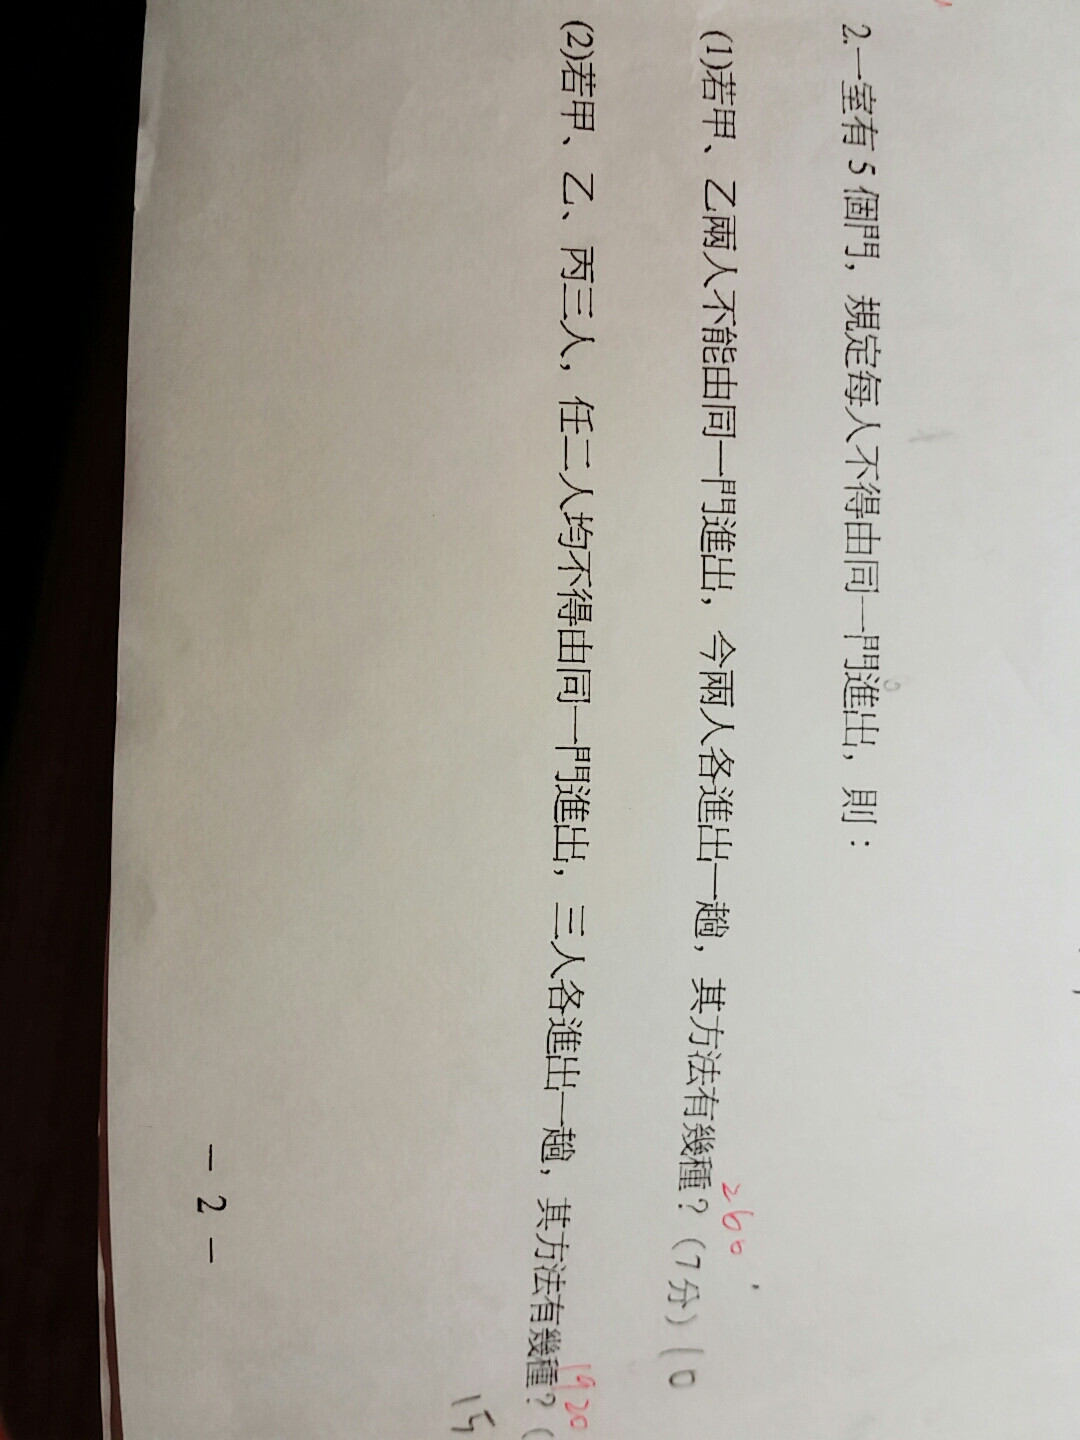 2.一室有 5 個門，規定每人不得由同一門進出，則：
(1)若甲、乙兩人不能由同一門進出，今兩人各進出一趟，其方法有幾種？(7分) 10
260
(2)若甲、乙、丙三人，任二人均不得由同一門進出，三人各進出一趟，其方法有幾種？(
1920
15
- 2 -